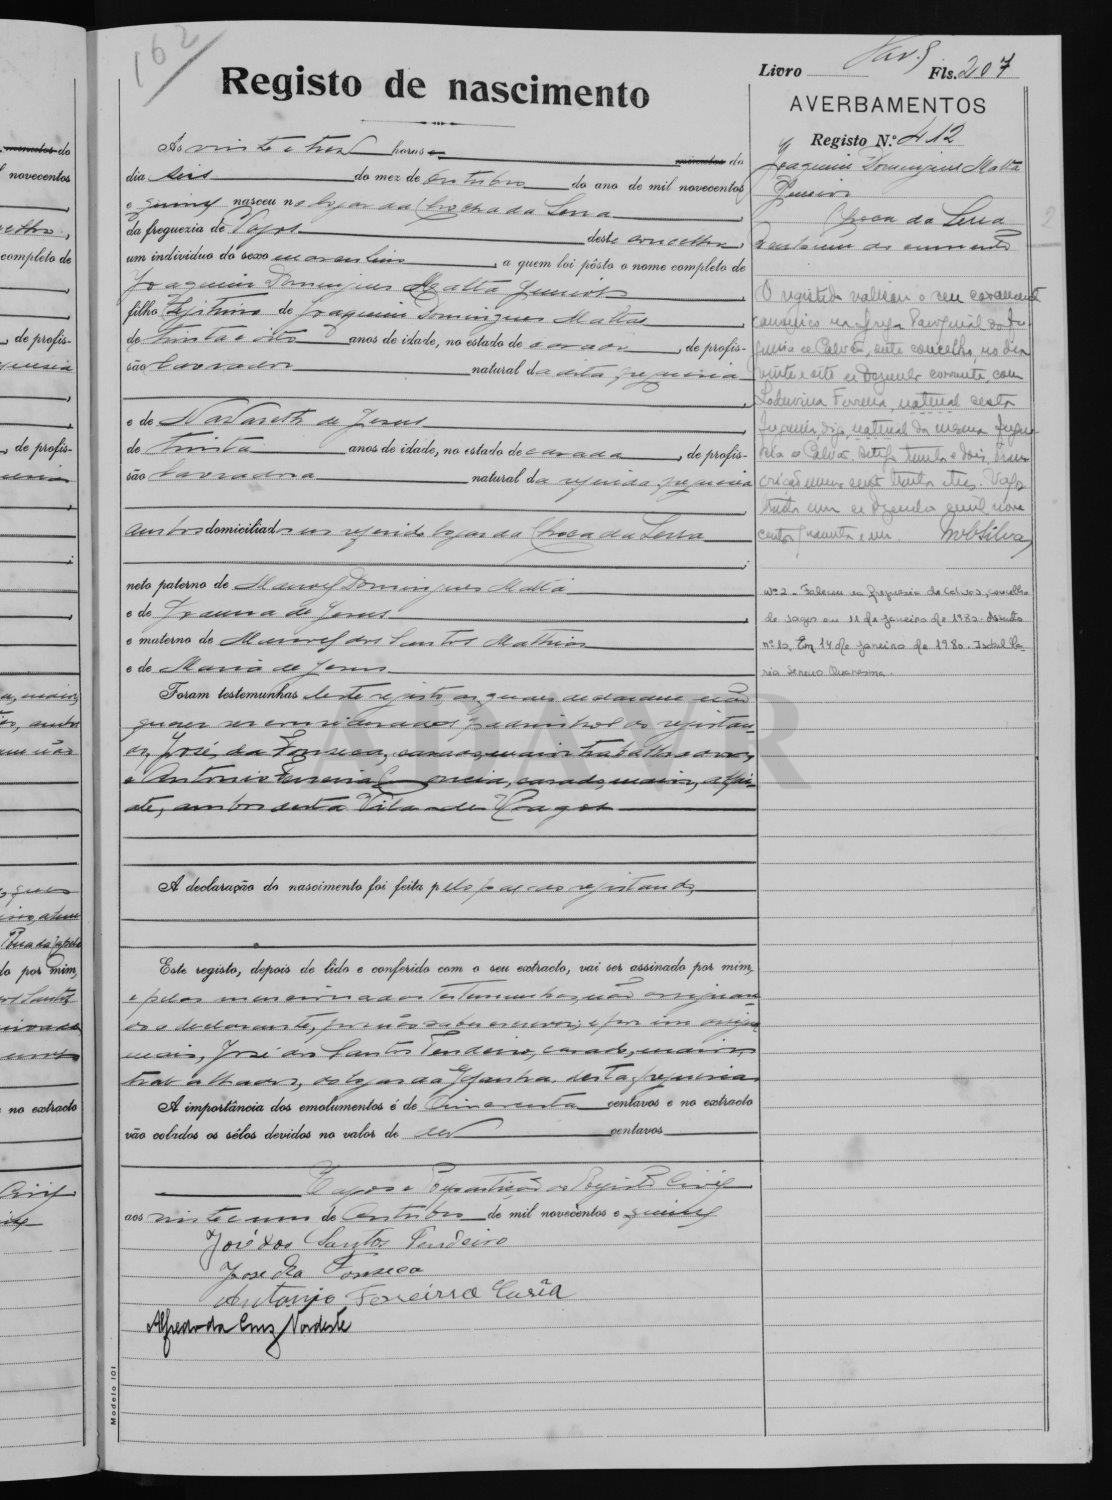 162
Registo de nascimento
Ás vinte e tres horas e minutos do
dia seis do mez de outubro do ano de mil novecentos
e quinze nasceu no lugar da Choca da Serra
da freguezia de Vagos deste concelho,
um individuo do sexo masculino, a quem foi pôsto o nome completo de
Joaquim Domingues Matta Junior
filho legitimo de Joaquim Domingues Matta
de trinta e oito anos de idade, no estado de casado, de profis-
são lavrador natural da dita freguesia
e de Nazareth de Jesus
de trinta anos de idade, no estado de casada, de profis-
são lavradora natural da referida freguesia
ambos domiciliados no referido lugar da Choca da Serra
neto paterno de Manoel Domingues Matta
e de Joanna de Jesus
e materno de Manoel dos Santos Mathias
e de Maria de Jesus
Foram testemunhas deste registo, os quaes declaram não
querer ser considerados padrinhos do registan-
do, José da Fonseca, casado, maior, trabalhador,
e Antonio Ferreira, casado, maior, alfai-
ate, ambos desta Vila de Vagos
A declaração do nascimento foi feita pelo pae do registando,
Este registo, depois de lido e conferido com o seu extracto, vai ser assinado por mim,
e pelas mencionadas testemunhas, não assignan-
do o declarante, por não saber escrever; e por im
mais, José dos Santos Tendeiro, casado, maior,
trabalhador, do lugar da desta freguesia
A importância dos emolumentos é de cincoenta centavos e no extracto
vão colados os sêlos devidos no valor de dez centavos
Vagos e Repartição do Registo Civil
aos vinte e um de Outubro de mil novecentos e quinze
José dos Santos Tendeiro
Jose da Fonseca
Antonio Ferreira
Alfredo da Cruz Nordeste
Modelo 101
Livro Fls. 207
AVERBAMENTOS
Registo N.º 412
Joaquim Domingues Matta
Junior
Choca da Serra
2
O registado realizou o seu casamento
canonico na Igreja Paroquial da fre-
guesia de Calvão, deste concelho, no dia
vinte e oito de Dezembro corrente, com
Ludovina Ferreira, natural desta
freguesia, digo, natural da mesma fregue-
sia de Calvão
trinta e tres. Vagos
trinta e um de Dezembro de mil nove
centos quarenta e um.
Nº 2 - Faleceu na freguesia de Calvão, concelho
de Vagos em 11 de Janeiro de 1980. Assento
nº 10, Em 14 de Janeiro de 1980. Isabel Ma-
ria
ADAVR